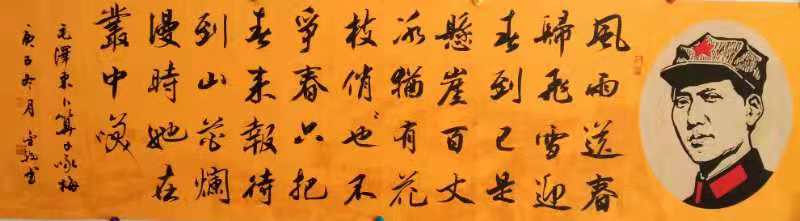 風雨送春
歸飛雪迎
春到已是
懸崖百丈
冰猶有花
枝俏〻也不
爭春只把
春来報待
到山花爛
漫時她在
叢中咲
毛澤東卜算子咏梅
庚子冬月 書